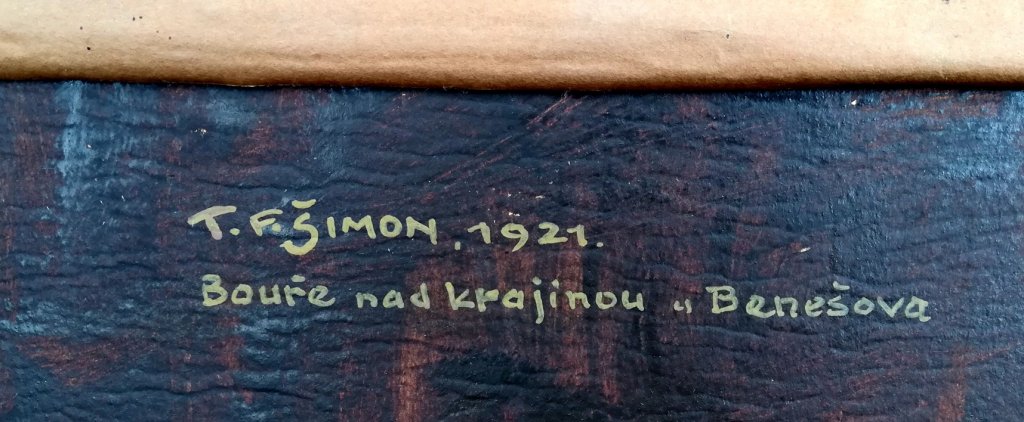 T. F. ŠIMON, 1921.
Bouře nad krajinou u Benešova